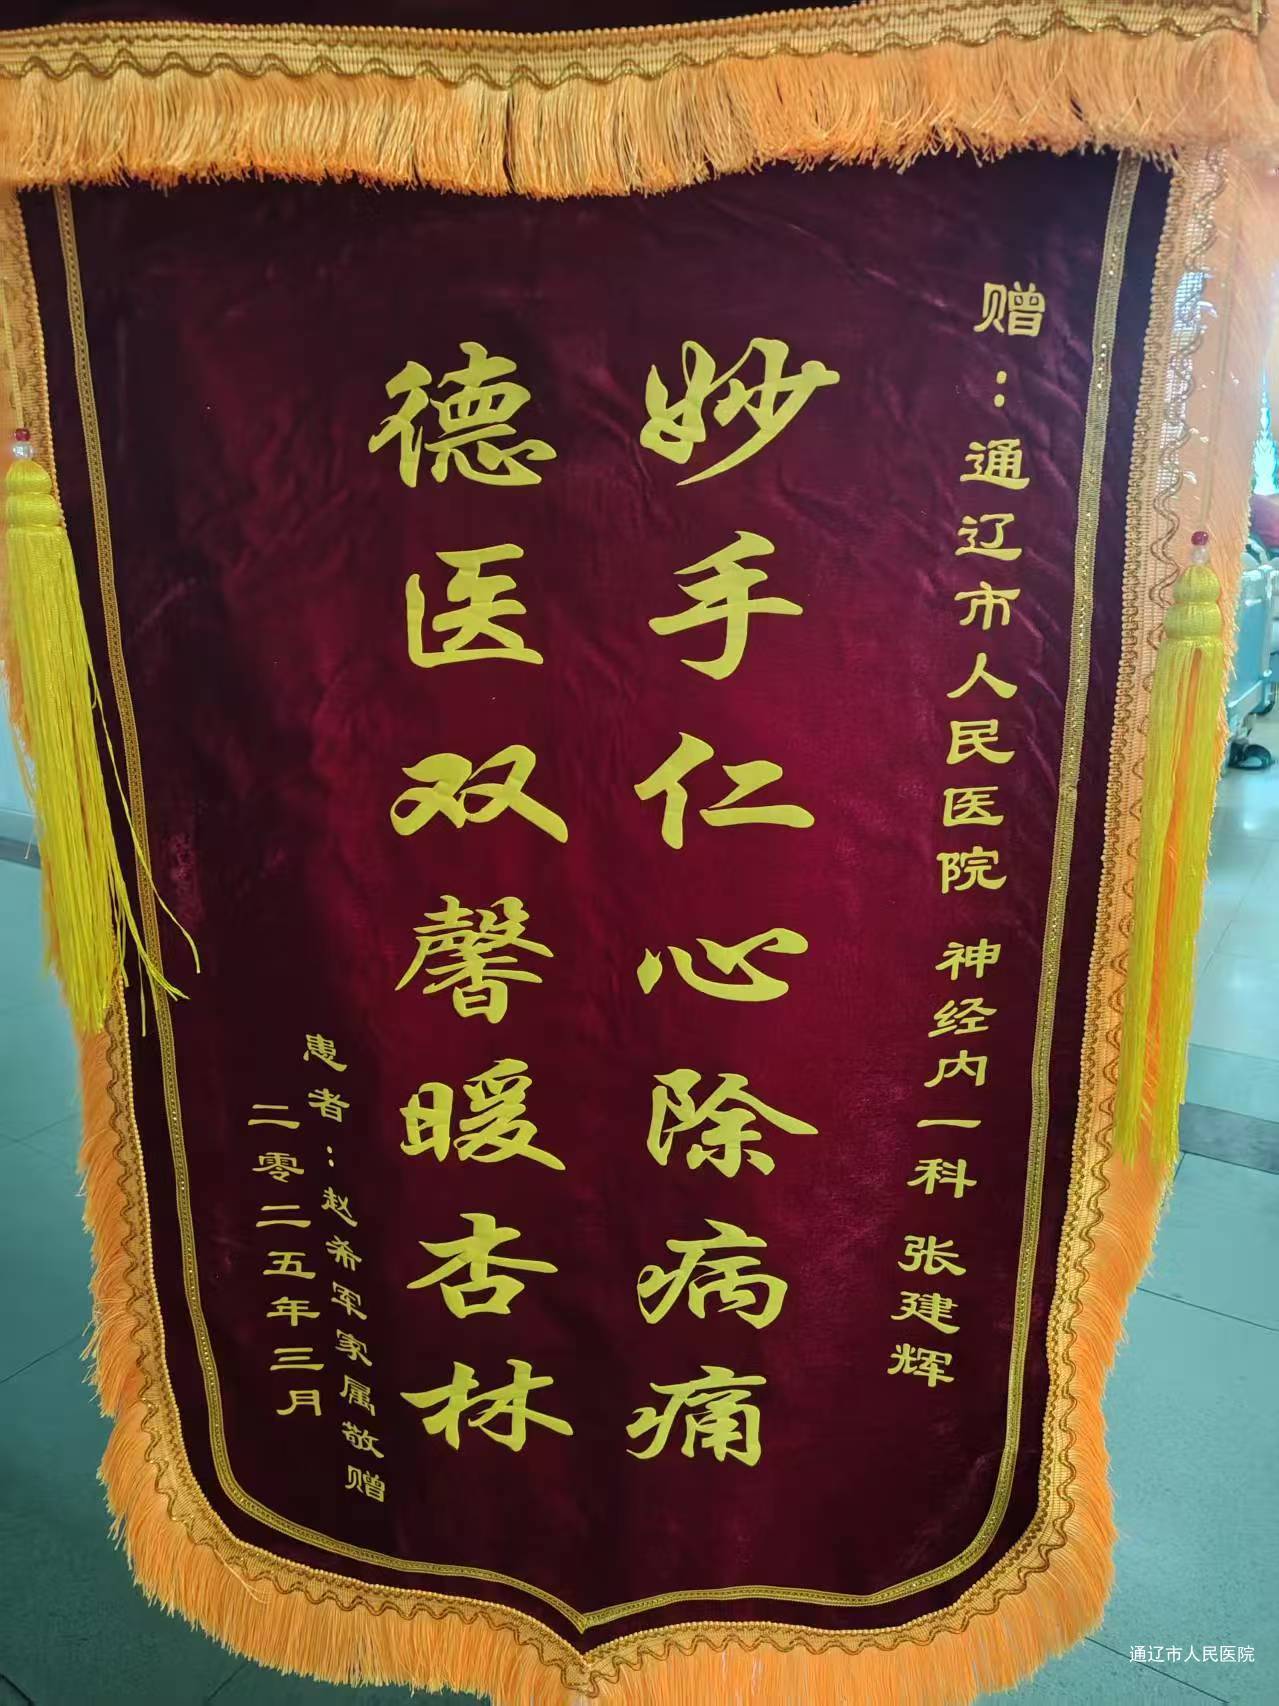 赠：通辽市人民医院 神经内一科 张建辉
妙手仁心除病痛
德医双馨暖杏林
患者：赵希军家属敬赠
二零二五年三月
通辽市人民医院